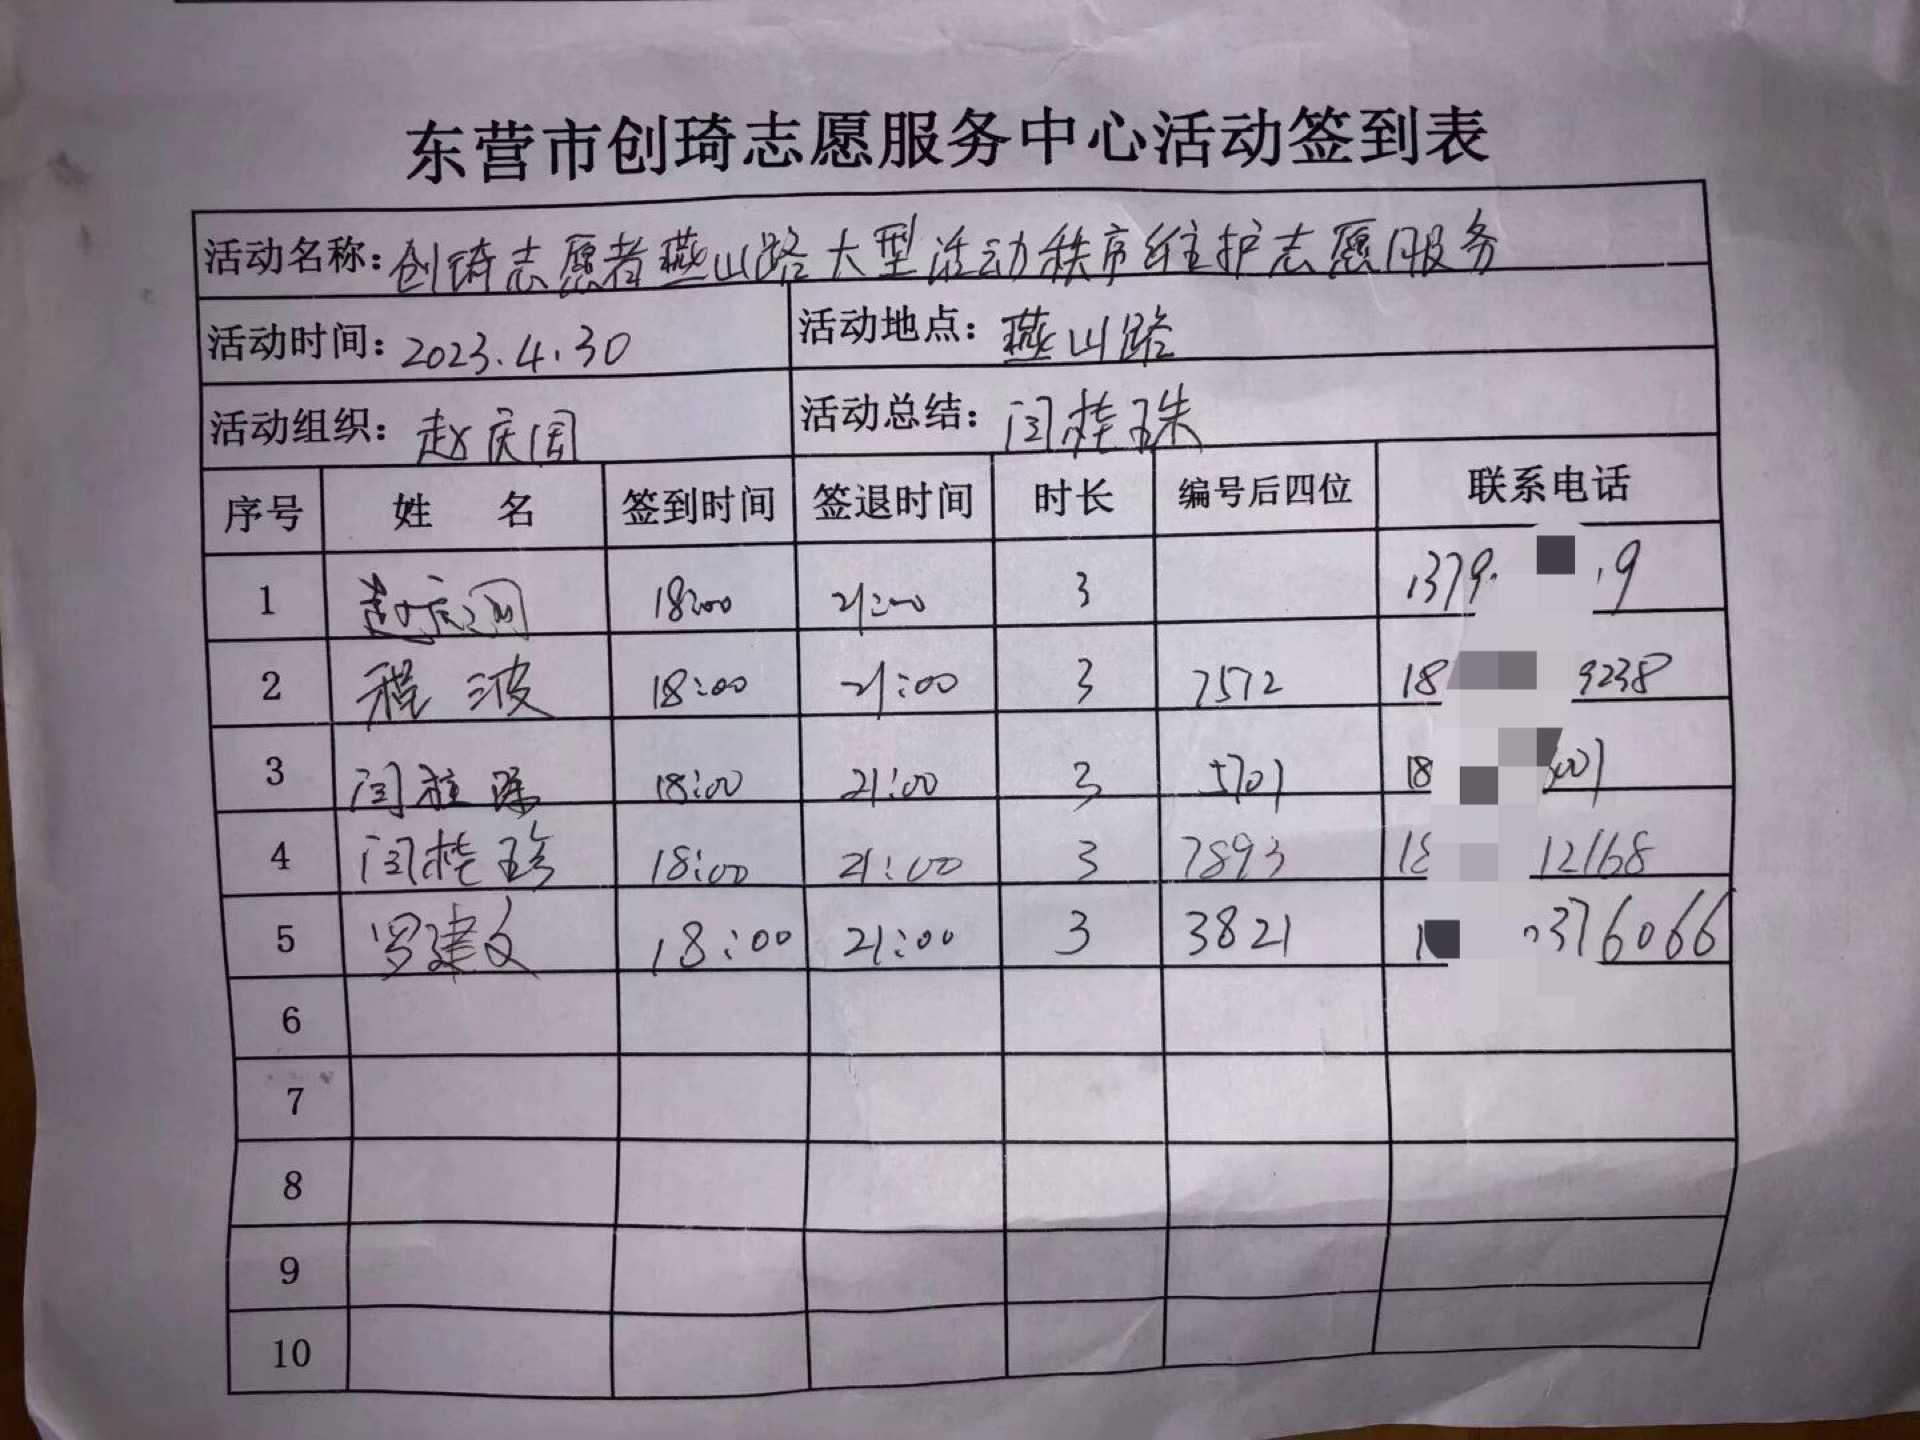 东营市创琦志愿服务中心活动签到表
活动名称：创琦志愿者燕山路大型活动秩序维护志愿服务
活动时间：2023.4.30 活动地点：燕山路
活动组织：赵庆国 活动总结：闫桂珠
序号 姓 名 签到时间 签退时间 时长 编号后四位 联系电话
1 18:00 21:00 3 1379 9
2 程波 18:00 21:00 3 7572 18 9238
3 闫桂珠 18:00 21:00 3 5701 18
4 闫桂珍 18:00 21:00 3 7893 18 12168
5 罗建文 18:00 21:00 3 3821 1 376066
6
7
8
9
10